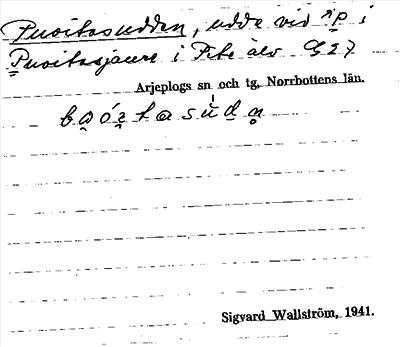 Puoitasudden, udde vid n p i
Puoitasjaure i Pite älv G 2 7
Arjeplogs sn och tg, Norrbottens län.
Sigvard Wallström, 1941.